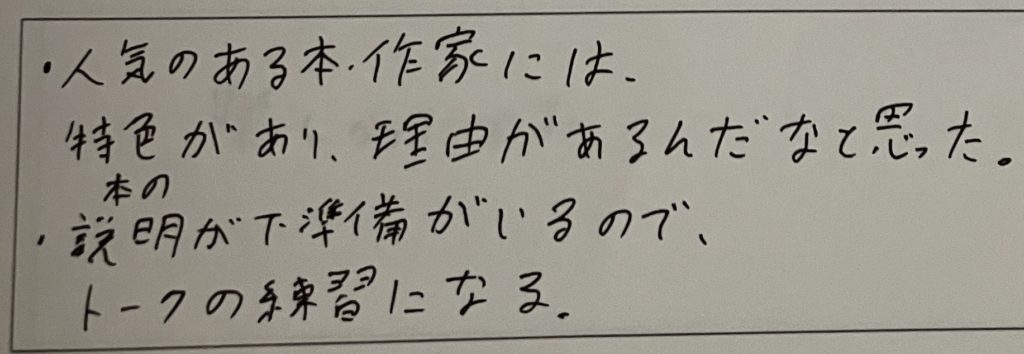 ・人気のある本・作家には、
特色があり、理由があるんだなと思った。
本の
・説明が下準備がいるので、
トークの練習になる。